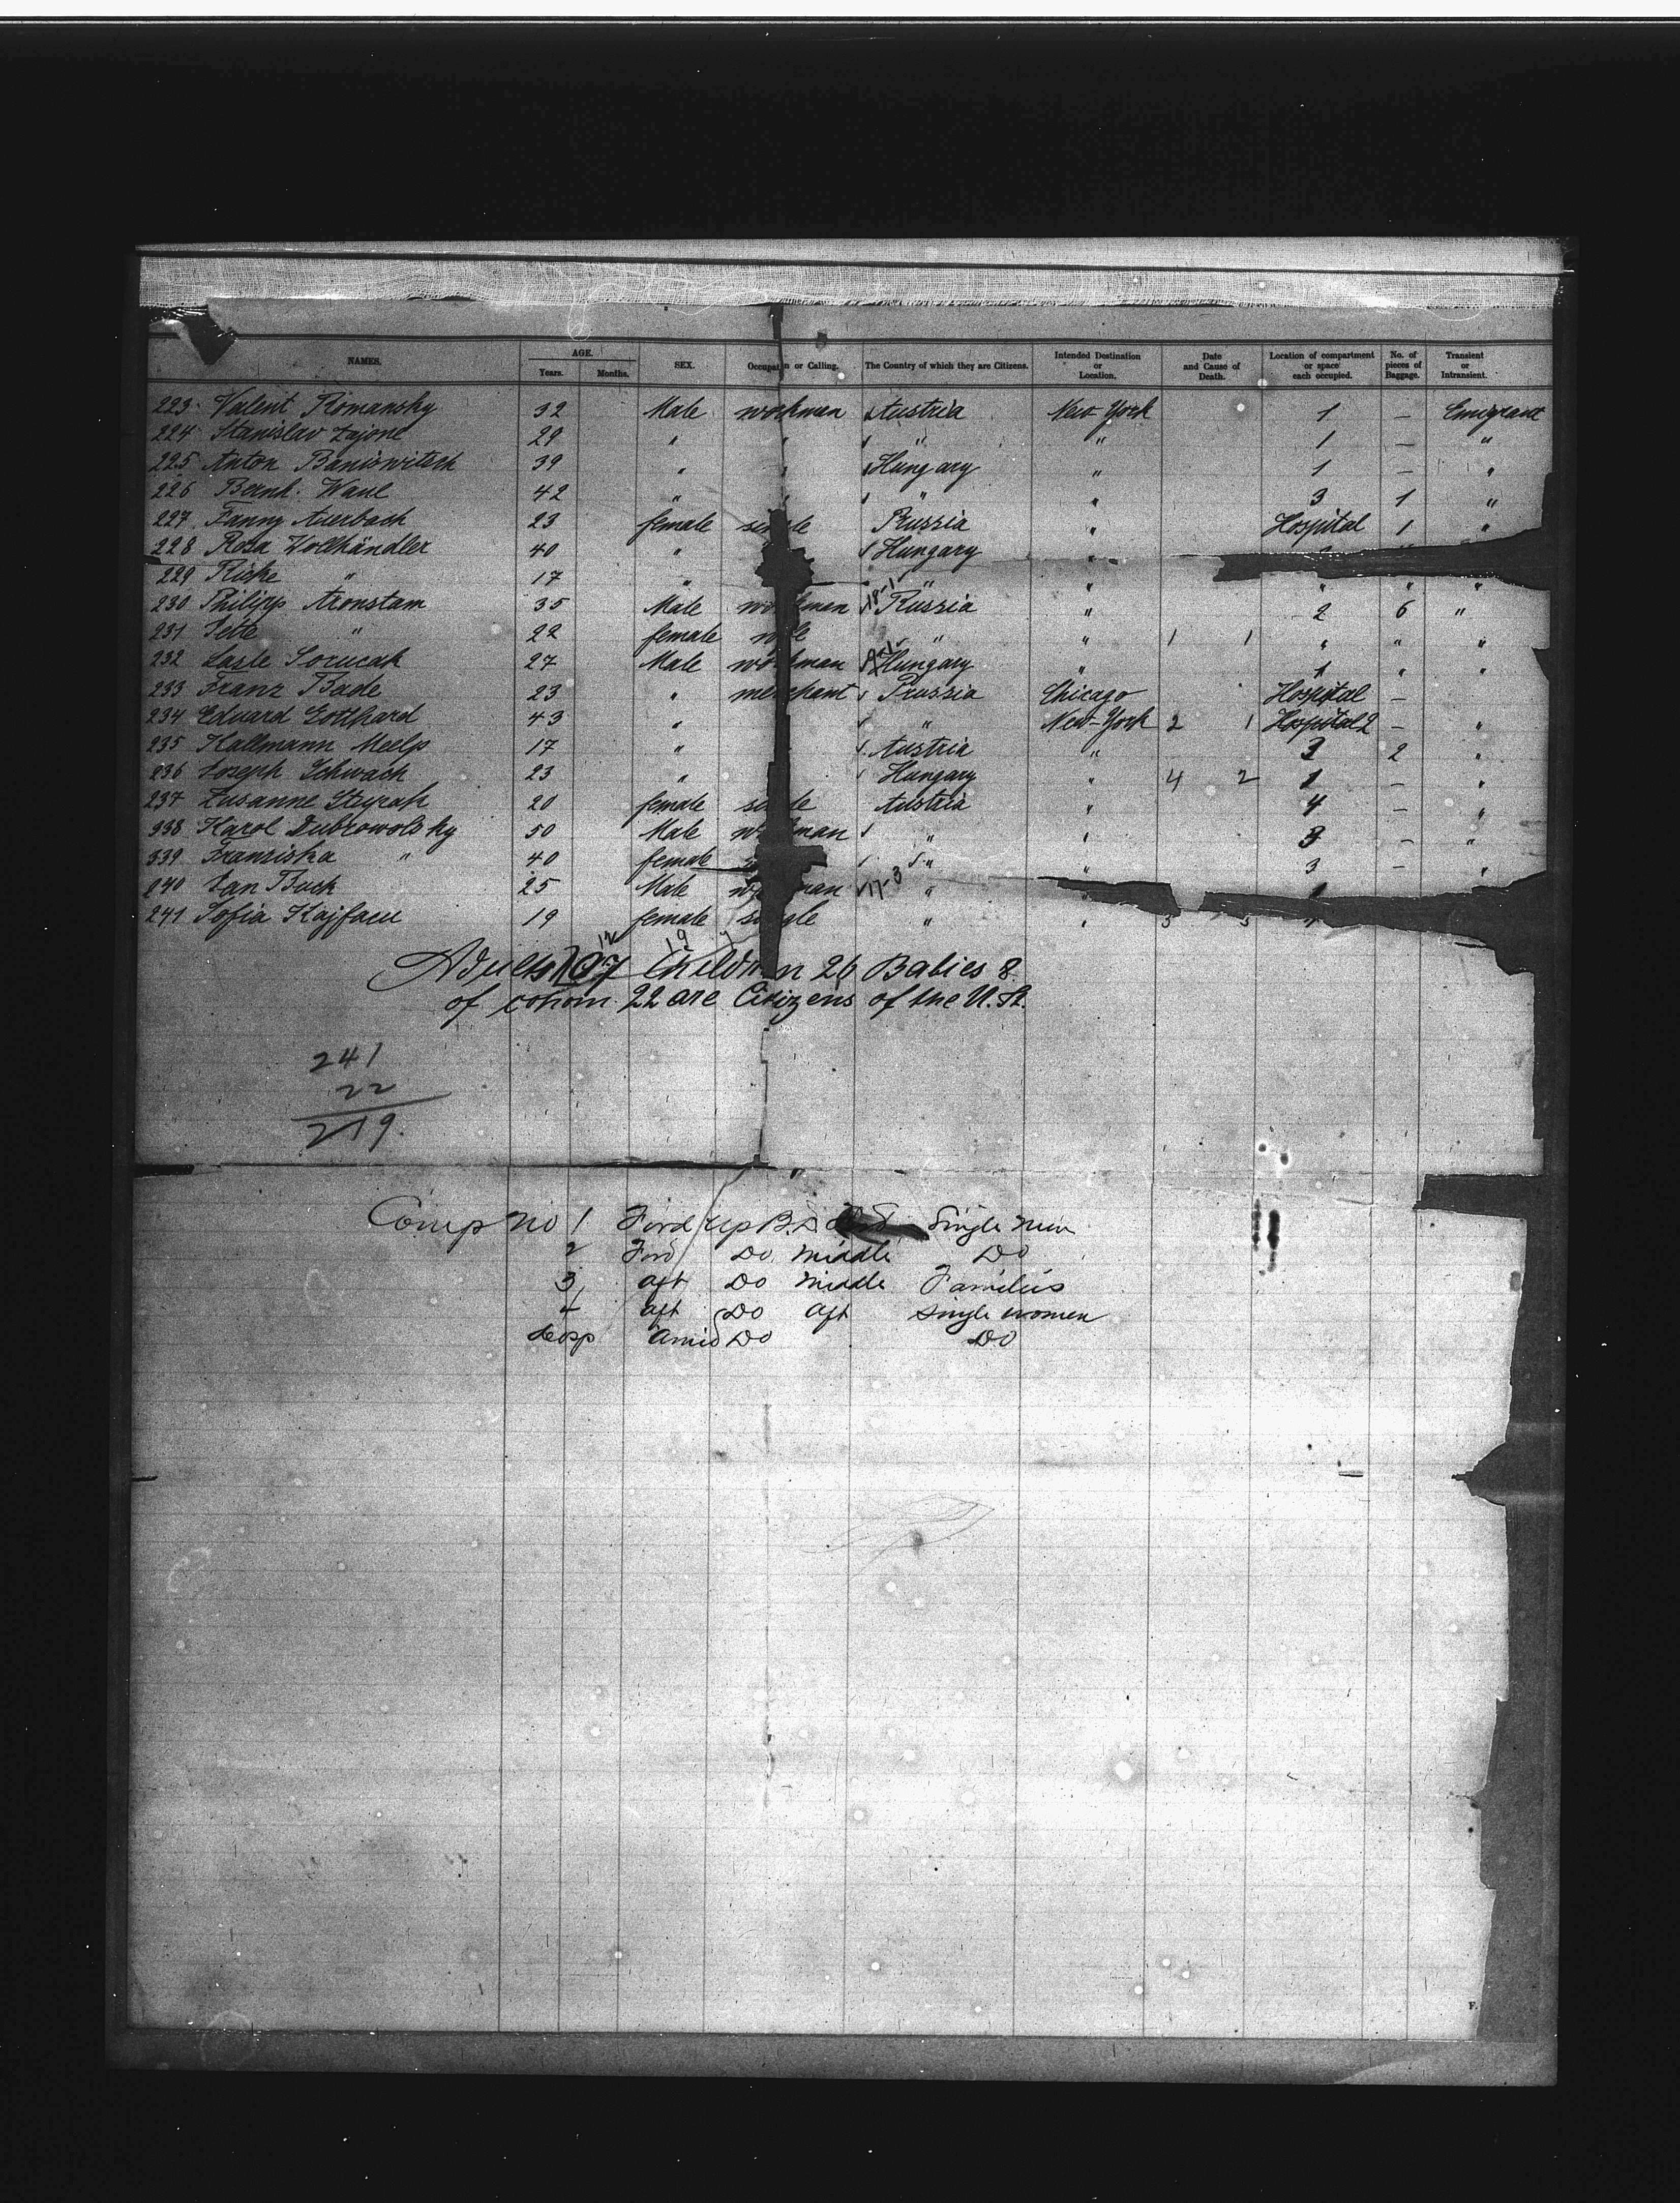 NAMES. AGE. Years. Months. SEX. Occupation or Calling. The Country of which they are Citizens. Intended Destination or Location. Date and Cause of Death. Location of compartment or space each occupied. No. of pieces of Baggage. Transient or Intransient.
223 Valent Romansky 32 Male workman Austria New York 1 — Emigrant
224 Stanislav Zajone 29 " " " " 1 — "
225 Anton Baniowitsch 39 " Hungary " 1 — "
226 Bernh. Waul 42 " " " 3 1 "
227 Fanny Auerbach 23 female single Prussia " Hospital 1 "
228 Rosa Wollhändler 40 " Hungary "
229 Ricke " 17 " " " " " "
230 Philipp Aronstam 35 Male workman 18-1 Russia " 2 6 "
231 Jette " 22 female wife " " 1 1 " " "
232 Lasle Sorucak 27 Male workman Hungary " 1 " "
233 Franz Bade 23 " merchant Prussia Chicago Hospital —
234 Eduard Gotthard 43 " " New-York 2 1 Hospital 2 — "
235 Kallmann Meelp 17 " Austria " 3 2 "
236 Joseph Schwach 23 " Hungary " 4 2 1 — "
237 Zusanne Styrak 20 female single Austria " 4 — "
338 Karol Dubrowolsky 50 Male workman " " 3 — "
339 Fransiska " 40 female " " 3 — "
240 Jan Buck 25 Male workman 17-3 " " 1
241 Sofia Kajfacu 19 female single " " 3 3
Adults 207 Children 26 Babies 8
of whom 22 are Citizens of the U. St.
241
22
219.
Comp No 1 Ford up B. D. Single Men
2 Ford Do. Middle Do
3 aft Do Middle Families
4 aft Do aft Single women
Hosp Amid Do Do
F.